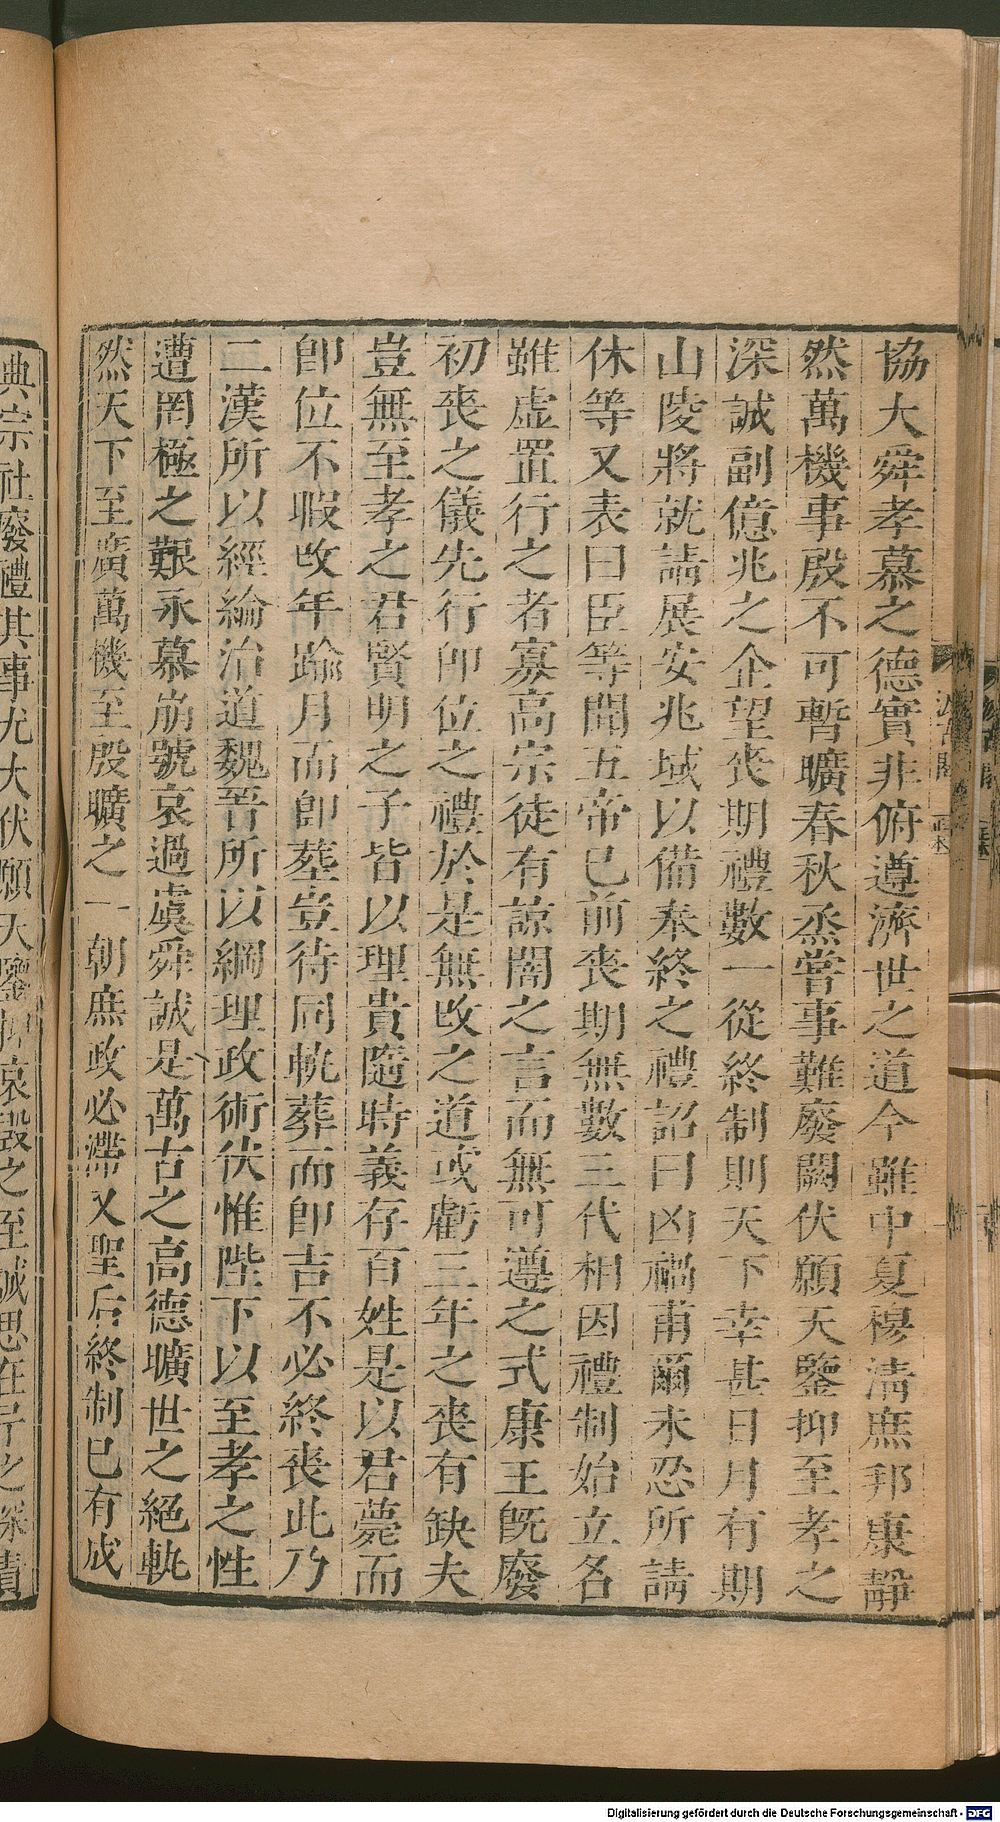 協大舜孝慕之德實非俯遵濟世之道今雖中夏穆淸庶邦康靜
然萬機事殷不可暫曠春秋烝嘗事難廢闕伏願天鑒抑至孝之
深誠副億兆之企望喪期禮數一從終制則天下幸甚日月有期
山陵將就請展安兆域以備奉終之禮詔曰凶禍甫爾未忍所請
休等又表曰臣等聞五帝已前喪期無數三代相因禮制始立名
雖虛置行之者寡高宗徒有諒闇之言而無可遵之式康王旣廢
初喪之儀先行卽位之禮於是無改之道或虧三年之喪有缺夫
豈無至孝之君賢明之子皆以理貴隨時義存百姓是以君薨而
卽位不暇改年踰月而卽葬豈待同軌葬而卽吉不必終喪此乃
二漢所以經綸治道魏晉所以綱理政術伏惟陛下以至孝之性
遭罔極之艱永慕崩號哀過虞舜誠是萬古之高德曠世之絕軌
然天下至廣萬機至殷曠之一朝庶政必滯又聖后終制已有成
典宗社廢禮其事尤大伏願天鑒抑哀毀之至誠思在
Digitalisierung gefördert durch die Deutsche Forschungsgemeinschaft - DFG